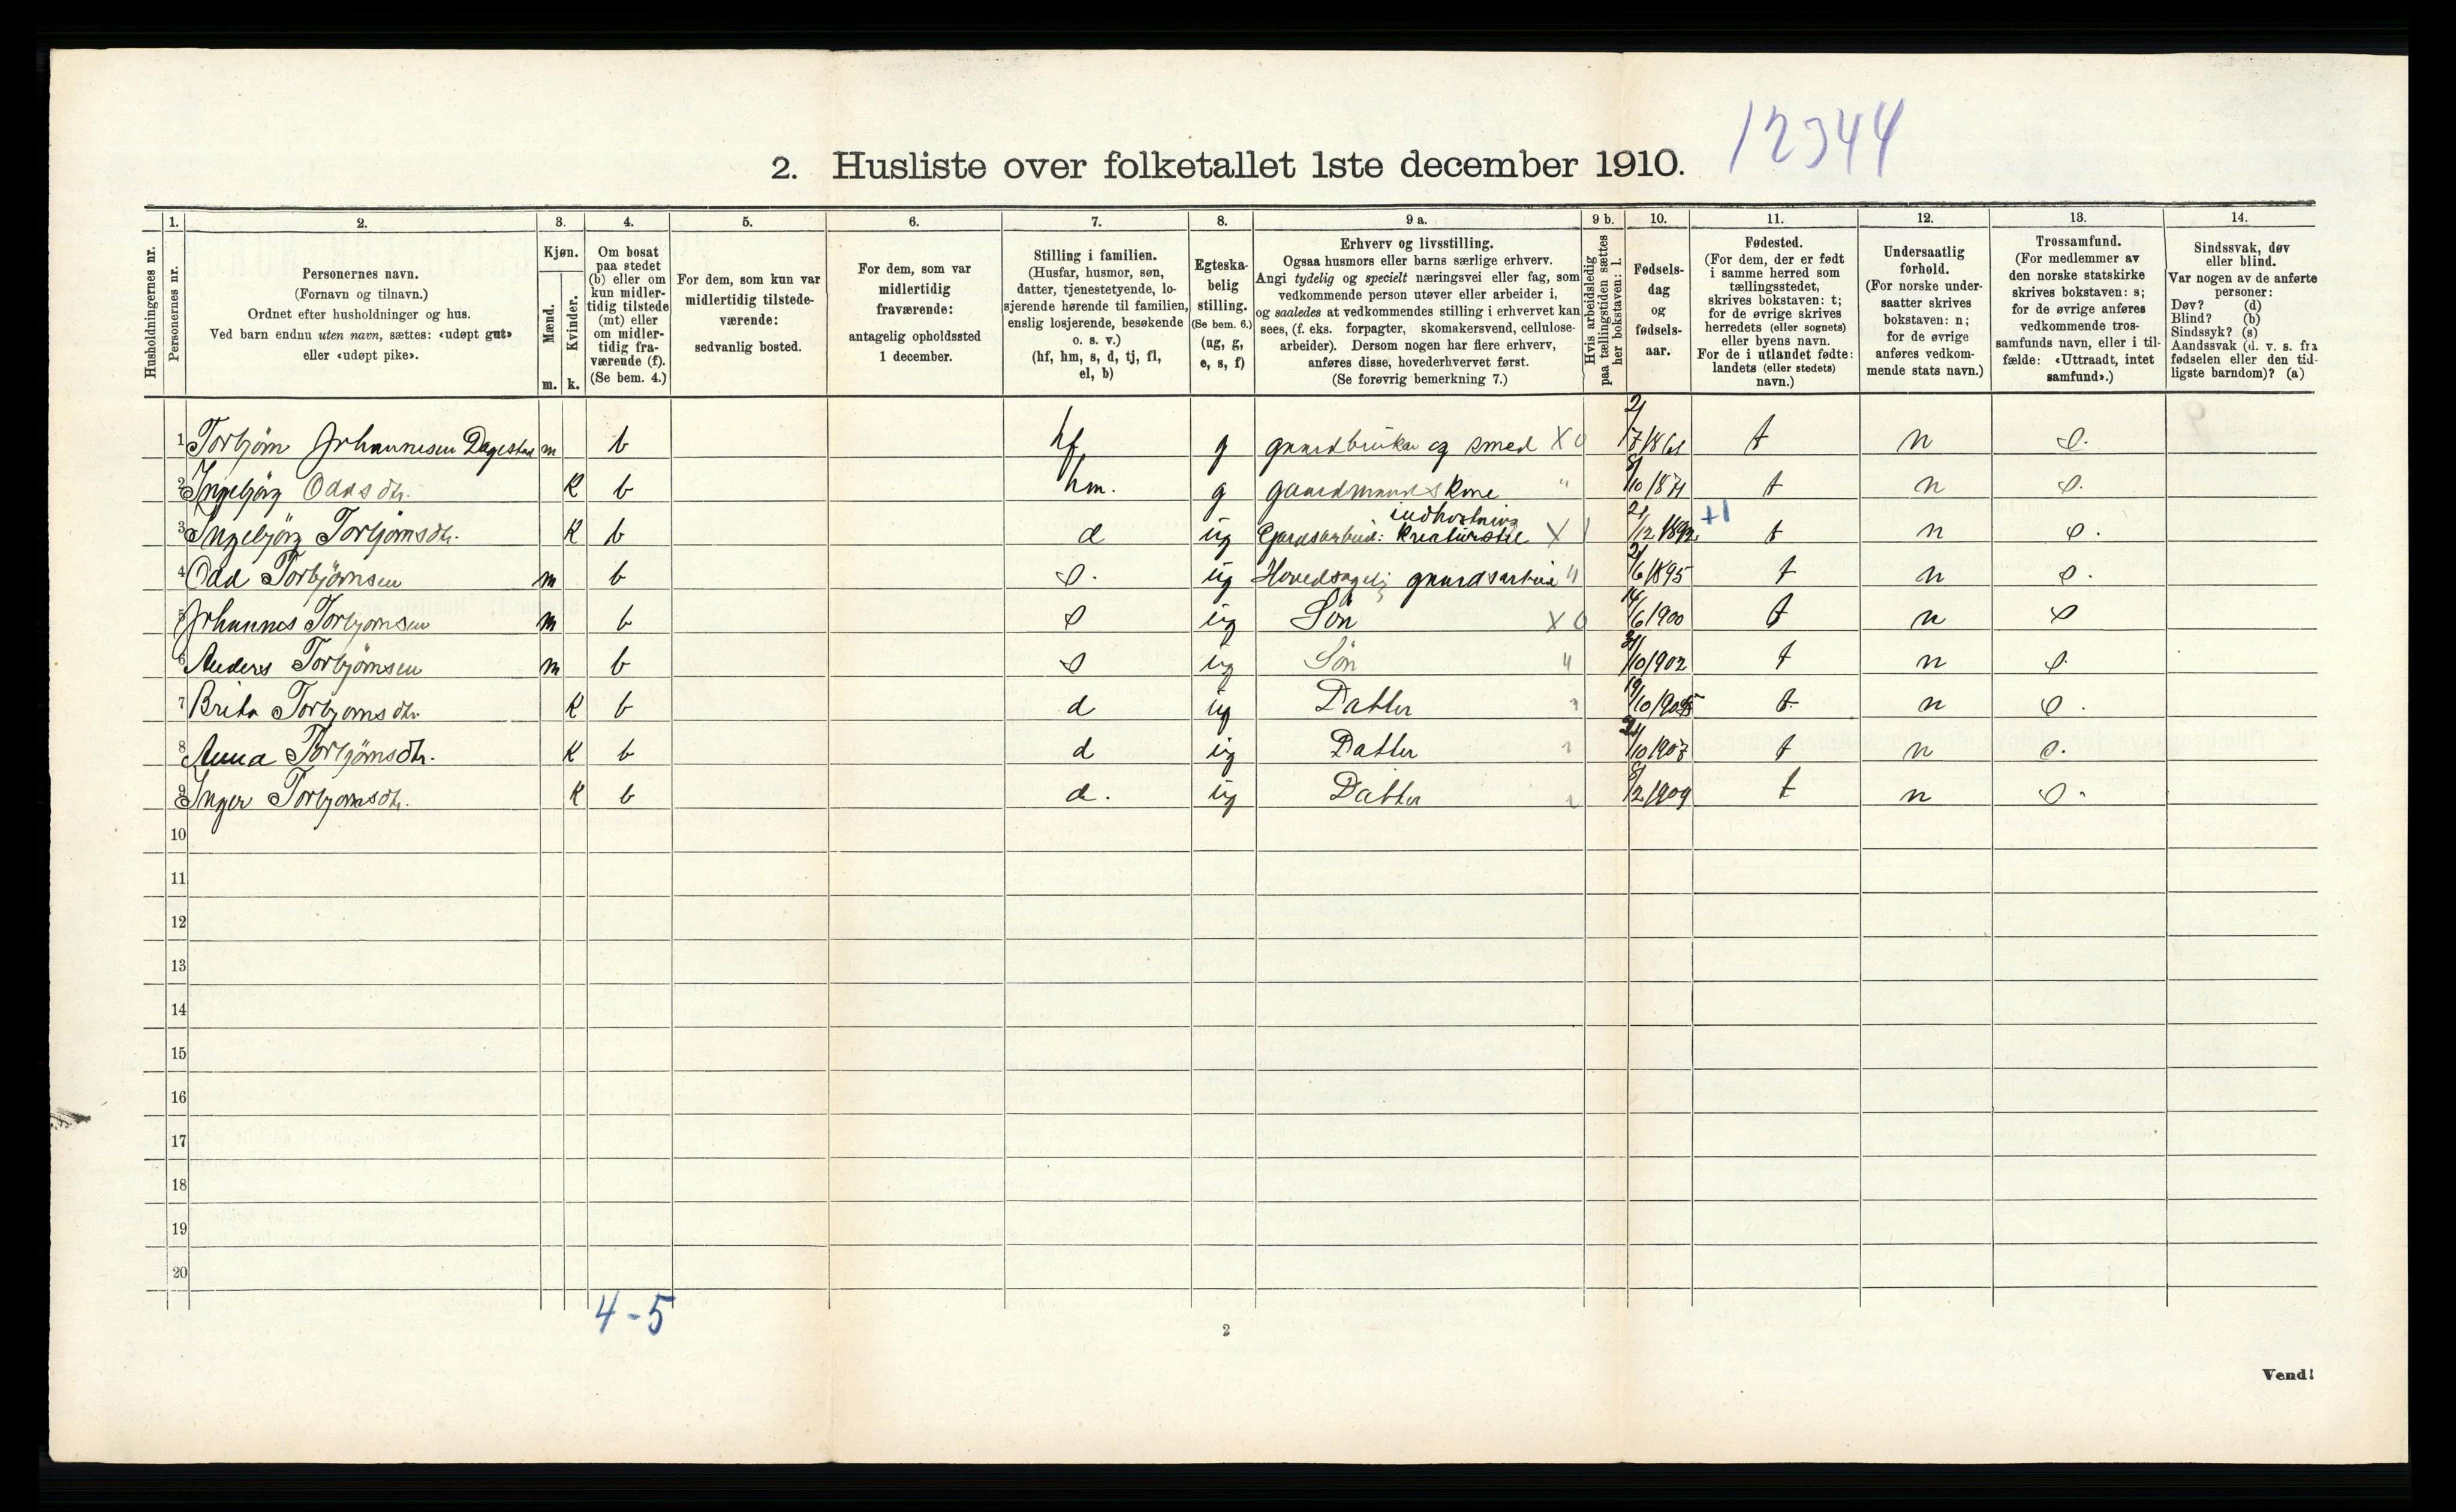 12344
2. Husliste over folketallet 1ste december 1910.
1. 2. 3. 4. 5. 6. 7. 8. 9 a. 9 b. 10. 11. 12. 13. 14.
Husholdningernes nr.
Personernes nr.
Personernes navn.
(Fornavn og tilnavn.)
Ordnet efter husholdninger og hus.
Ved barn endnu uten navn, sættes: «udøpt gut»
eller «udøpt pike».
Kjøn.
Mænd.
Kvinder.
m. k.
Om bosat
paa stedet
(b) eller om
kun midler-
tidig tilstede
(mt) eller
om midler-
tidig fra-
værende (f).
(Se bem. 4.)
For dem, som kun var
midlertidig tilstede-
værende:
sedvanlig bosted.
For dem, som var
midlertidig
fraværende:
antagelig opholdssted
1 december.
Stilling i familien.
(Husfar, husmor, søn,
datter, tjenestetyende, lo-
sjerende hørende til familien,
enslig losjerende, besøkende
o. s. v.)
(hf, hm, s, d, tj, fl,
el, b)
Egteska-
belig
stilling.
(Se bem. 6.)
(ug, g,
e, s, f)
Erhverv og livsstilling.
Ogsaa husmors eller barns særlige erhverv.
Angi tydelig og specielt næringsvei eller fag, som
vedkommende person utøver eller arbeider i,
og saaledes at vedkommendes stilling i erhvervet kan
sees, (f. eks. forpagter, skomakersvend, cellulose-
arbeider). Dersom nogen har flere erhverv,
anføres disse, hovederhvervet først.
(Se forøvrig bemerkning 7.)
Hvis arbeidsledig
paa tællingstiden sættes
her bokstaven: l.
Fødsels-
dag
og
fødsels-
aar.
Fødested.
(For dem, der er født
i samme herred som
tællingsstedet,
skrives bokstaven: t;
for de øvrige skrives
herredets (eller sognets)
eller byens navn.
For de i utlandet fødte:
landets (eller stedets)
navn.)
Undersaatlig
forhold.
(For norske under-
saatter skrives
bokstaven: n;
for de øvrige
anføres vedkom-
mende stats navn.)
Trossamfund.
(For medlemmer av
den norske statskirke
skrives bokstaven: s;
for de øvrige anføres
vedkommende tros-
samfunds navn, eller i til-
fælde: «Uttraadt, intet
samfund».)
Sindssvak, døv
eller blind.
Var nogen av de anførte
personer:
Døv? (d)
Blind? (b)
Sindssyk? (s)
Aandssvak (d. v. s. fra
fødselen eller den tid-
ligste barndom)? (a)
1 Torbjørn Johannesen Dagestad m b hf g gaardbruker og smed X 0 t n s.
2 Ingebjørg Odds dtr. K b hm. g gaardmands kone " 8/10 1871 t n s.
indhøstning
3 Ingebjørg Torbjørnsdtr. K b d ug Gardsarbeid: kreaturstel X 1 21/12 1892 +1 t n s.
4 Odd Torbjörnsen m b s. ug Hovedsagelig gaardsarbeide " 2/6 1895 t n s.
5 Johannes Torbjørnsen m b s ug Sön X 0 14/6 1900 t n s
6 Anders Torbjörnsen m b s ug Sön " /10 1902 t n s.
7 Brita Torbjørnsdtr. K b d ug Datter " 19/10 1905 t n s.
8 Anna Torbjörnsdtr. K b d ug Datter " /10 1907 t n s.
9 Inger Torbjørnsdtr. K b d. ug Datter " 8/2 1909 t n s.
10
11
12
13
14
15
16
17
18
19
20
4-5
2
Vend!